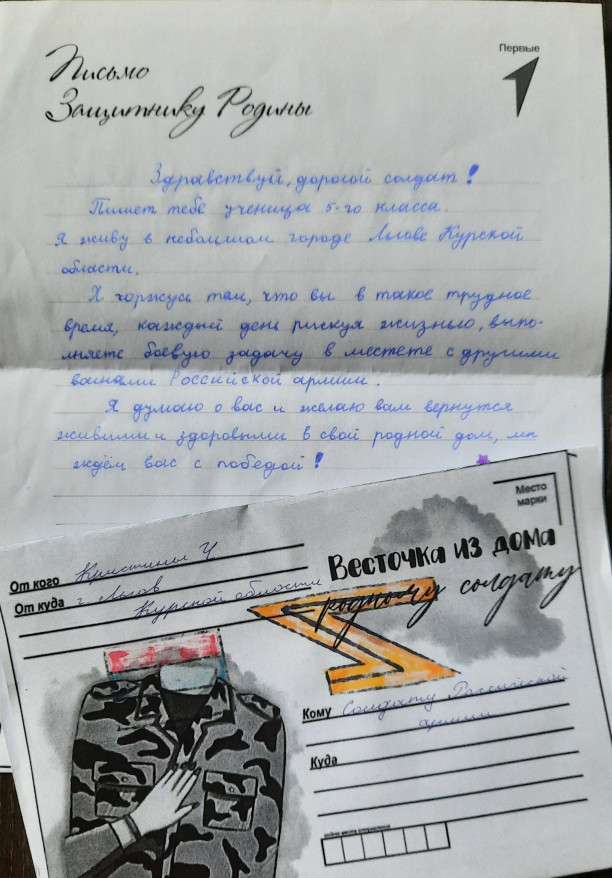 Первые
Письмо
Защитнику Родины
Здравствуй, дорогой солдат!
Пишет тебе ученица 5-го класса.
Я живу в небольшом городе Льгове Курской
области.
Я горжусь тем, что вы в такое трудное
время, каждый день рискуя жизнью, выпо-
лняете боевую задачу в местете с другими
воинами Российской армиии.
Я думаю о вас и желаю вам вернутся
живыми и здоровыми в свой родной дом, мы
ждём вас с победой!
Место
марки
Весточка из дома
родному солдату
От кого Кристины Ч
От куда г. Льгов
Курской области
Кому Солдату Российской
армии
Куда